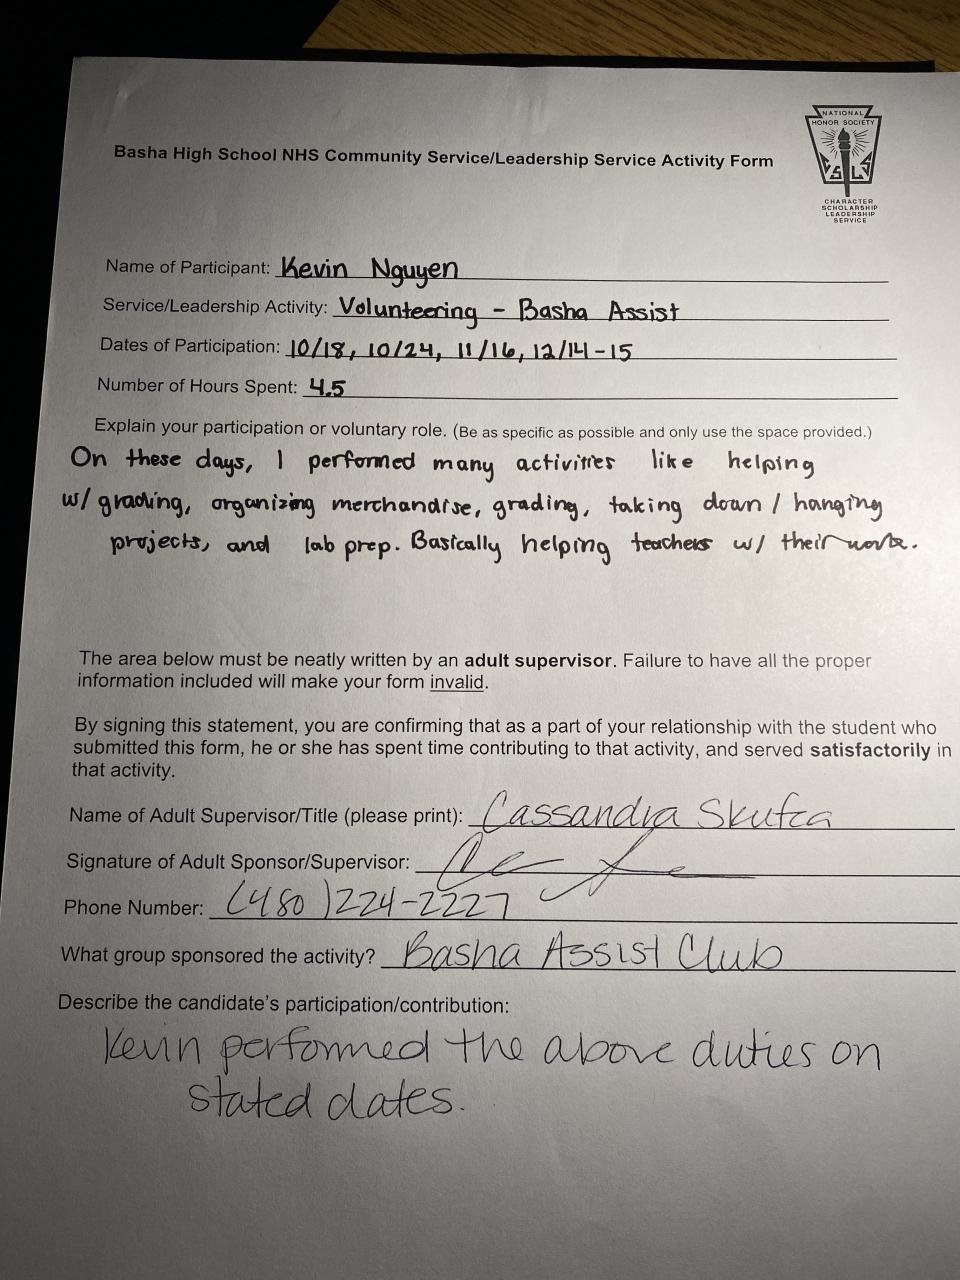 NATIONAL
HONOR SOCIETY
S L S
CHARACTER
SCHOLARSHIP
LEADERSHIP
SERVICE
Basha High School NHS Community Service/Leadership Service Activity Form
Name of Participant: Kevin Nguyen
Service/Leadership Activity: Volunteering - Basha Assist
Dates of Participation: 10/18, 10/24, 11/16, 12/14-15
Number of Hours Spent: 4.5
Explain your participation or voluntary role. (Be as specific as possible and only use the space provided.)
On these days, I performed many activities like helping
w/ grading, organizing merchandise, grading, taking down / hanging
projects, and lab prep. Basically helping teachers w/ their work.
The area below must be neatly written by an adult supervisor. Failure to have all the proper
information included will make your form invalid.
By signing this statement, you are confirming that as a part of your relationship with the student who
submitted this form, he or she has spent time contributing to that activity, and served satisfactorily in
that activity.
Name of Adult Supervisor/Title (please print): Cassandra Skufca
Signature of Adult Sponsor/Supervisor:
Phone Number: (480)224-2227
What group sponsored the activity? Basha Assist Club
Describe the candidate's participation/contribution:
Kevin performed the above duties on
stated dates.